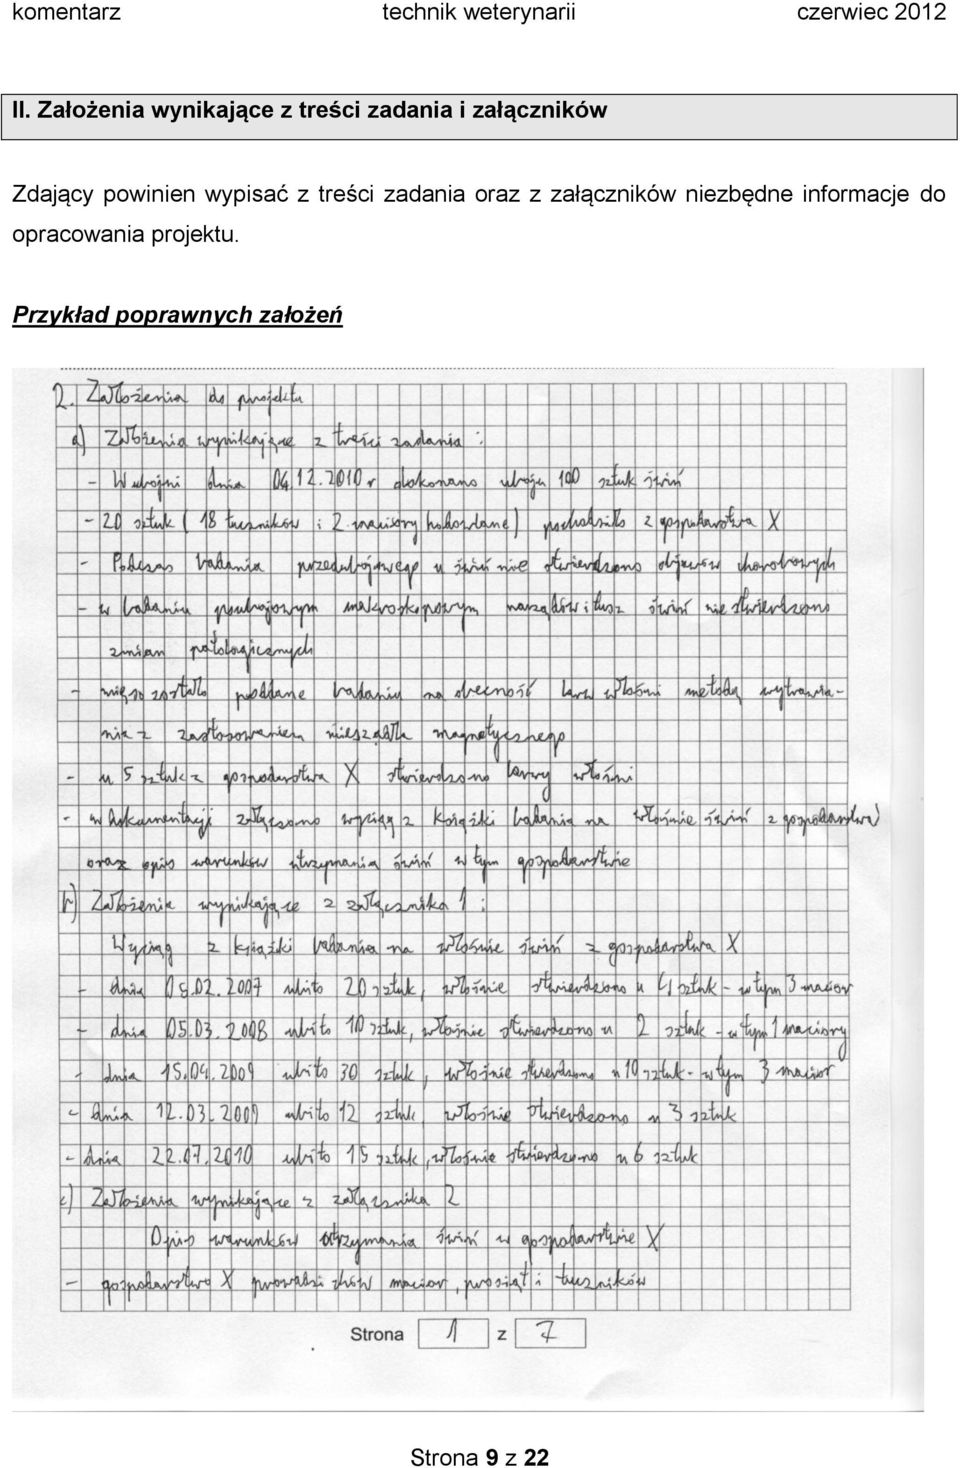 komentarz technik weterynarii czerwiec 2012
II. Założenia wynikające z treści zadania i załączników
Zdający powinien wypisać z treści zadania oraz z załączników niezbędne informacje do
opracowania projektu.
Przykład poprawnych założeń
2. Założenia do projektu
a) Założenia wynikające z treści zadania :
- W ubojni dnia 04.12.2010r dokonano uboju 100 sztuk świń
- 20 sztuk ( 18 tuczników i 2 maciory hodowlane) pochodziło z gospodarstwa X
- Podczas badania przedubojowego u świń nie stwierdzono objawów chorobowych
- w badaniu poubojowym makroskopowym narządów i tusz świń nie stwierdzono
zmian patologicznych
- mięso zostało poddane badaniu na obecność larw włośni metodą wytrawia-
nia z zastosowaniem mieszadła magnetycznego
- u 5 sztuk z gospodarstwa X stwierdzono larwy włośni
- w dokumentacji załączono wyciąg z książki badania na włośnie świń z gospodarstwa
oraz opis warunków utrzymania świń w tym gospodarstwie
b) Założenia wynikające z załącznika 1 :
Wyciąg z książki badania na włośnie świń z gospodarstwa X
- dnia 02.2007 ubito 20 sztuk, włośnie stwierdzono u 4 sztuk - w tym 3 macior
- dnia 05.03.2008 ubito 10 sztuk, włośnie stwierdzono u 2 sztuk - w tym 1 maciory
- dnia 15.04.2009 ubito 30 sztuk, włośnie stwierdzono u 10 sztuk - w tym 3 macior
- dnia 12.03.2009 ubito 12 sztuk, włośnie stwierdzono u 3 sztuk
- dnia 22.07.2010 ubito 15 sztuk, włośnie stwierdzono u 6 sztuk
c) Założenia wynikające z załącznika 2
Opis warunków utrzymania świń w gospodarstwie X
- gospodarstwo X prowadzi chów macior, prosiąt i tuczników
Strona 1 z 7
Strona 9 z 22